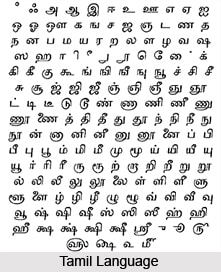 ஂ ஃ அ ஆ இ ஈ உ ஊ எ ஏ ஐ
ஒ ஓ ஔ க ங ச ஜ ஞ ட ண த
ந ன ப ம ய ர ற ல ள ழ வ ஷ
ஸ ஹ
கி கீ கு கூ ஙி ஙீ ஙு ஙூ சி சீ
சு சூ ஜி ஜீ ஞி ஞீ ஞு ஞூ
டி டீ டு டூ ணி ணீ ணு
ணூ ணை தி தீ து தூ நி நீ நு
நூ னி னீ னு னூ னை பி
பீ பு பூ மி மீ மு மூ யி யீ யு
யூ ரி ரீ ரு ரூ றி றீ று றூ
லி லீ லு லூ லை ளி ளீ ளு
ளூ ளை ழி ழீ ழு ழூ வி வீ வு
வூ ஷி ஷீ ஸி ஸீ ஹி
ஹீ க்ஷ க்ஷி க்ஷீ ஸ்ரீ
Tamil Language